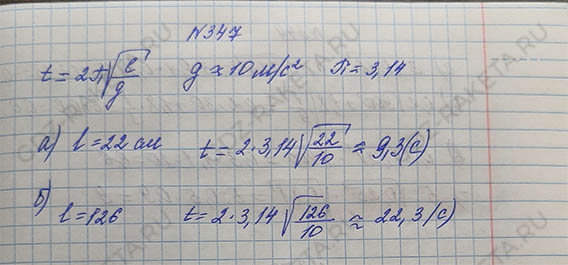 N347
t = 2π√(l/g) g ≈ 10 м/с² π = 3,14
а) l = 22 см t = 2·3,14√(22/10) ≈ 9,3(с)
б) l = 126 t = 2·3,14√(126/10) ≈ 22,3(с)